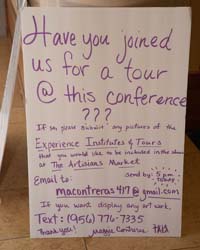 Have you joined
us for a tour
@ this conference
???
If so, please submit any pictures of the
Experience Institutes & Tours
that you would like to be included in the show
at The Artisians Market
Email to: send by: 5 p.m.
today
macontreras417@gmail.com
If you want display any art work.
Text: (956) 776-7335
Thank you!